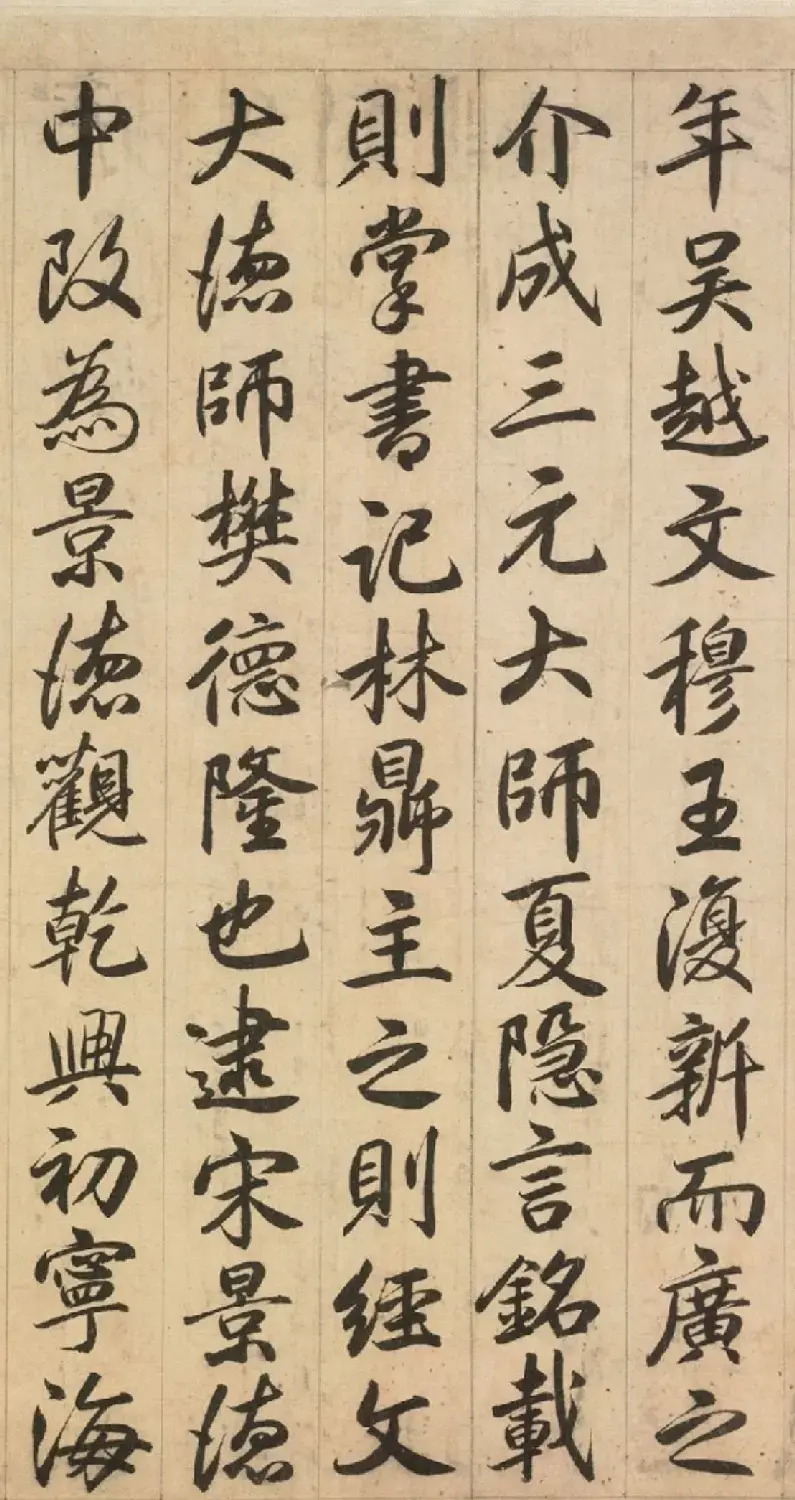 年吴越文穆王復新而廣之
介成三元大師夏隐言銘載
則掌書記林鼎主之則經文
大德師樊德隆也逮宋景德
中改為景德觀乾興初寧海